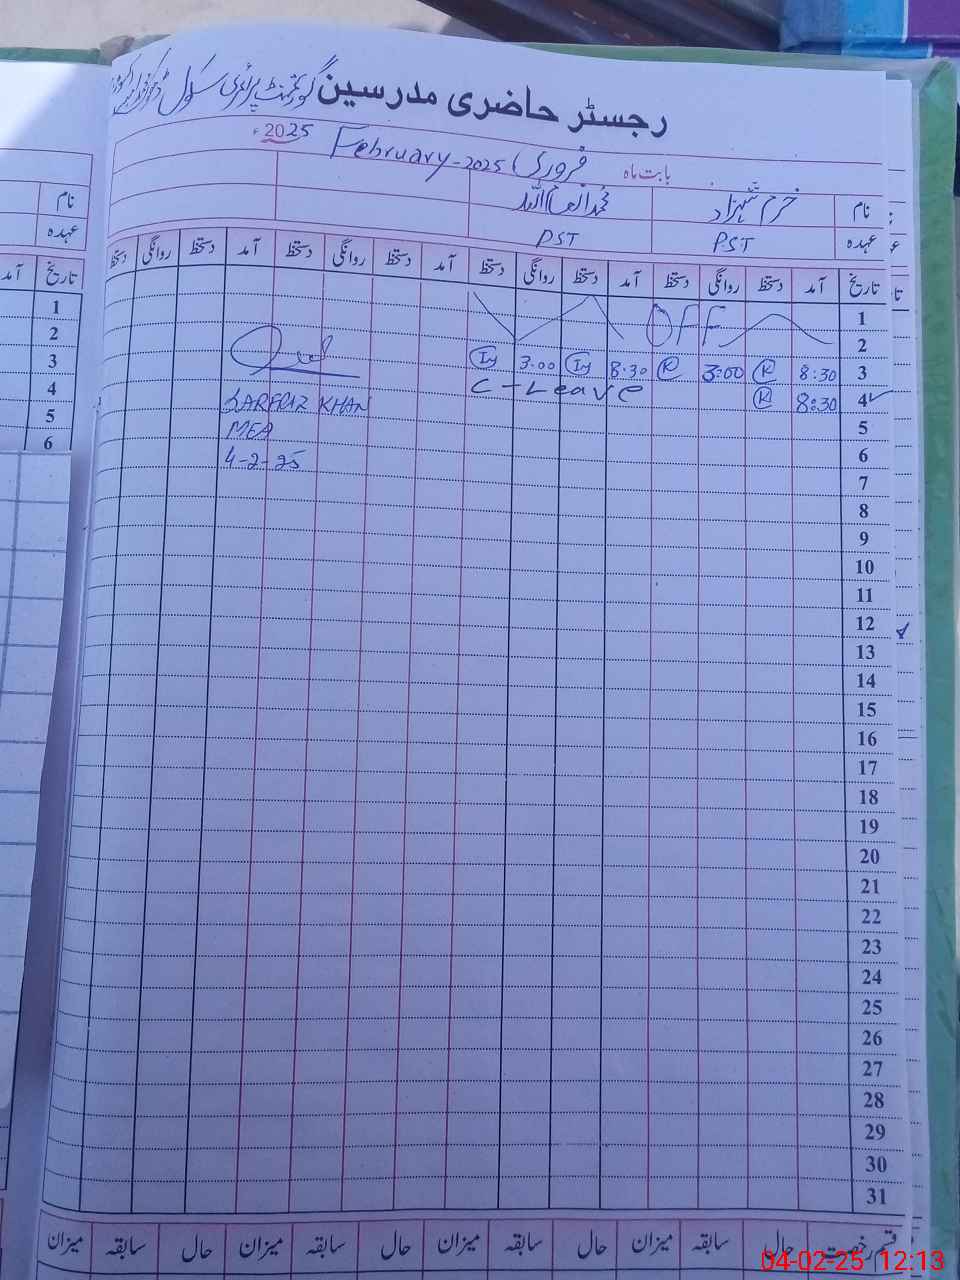 رجسٹر حاضری مدرسین گورنمنٹ پرائمری سکول
بابت ماہ فروری February-2025 2025ء
نام خرم شہزاد محمد انعام اللہ
عہدہ PST PST
تاریخ آمد دستخط روانگی دستخط آمد دستخط روانگی دستخط آمد دستخط روانگی دستخط آمد دستخط روانگی دستخط
1 OFF
2
3 8:30 R 3:00 R 8:30 In 3:00 In
4 8:30 R C-Leave
SARFRAZ KHAN
5
MEA
6
4-2-25
7
8
9
10
11
12
13
14
15
16
17
18
19
20
21
22
23
24
25
26
27
28
29
30
31
قسم رخصت حال سابقہ میزان حال سابقہ میزان حال سابقہ میزان حال سابقہ میزان
نام
عہدہ
تاریخ آمد
1
2
3
4
5
6
04-02-25 12:13